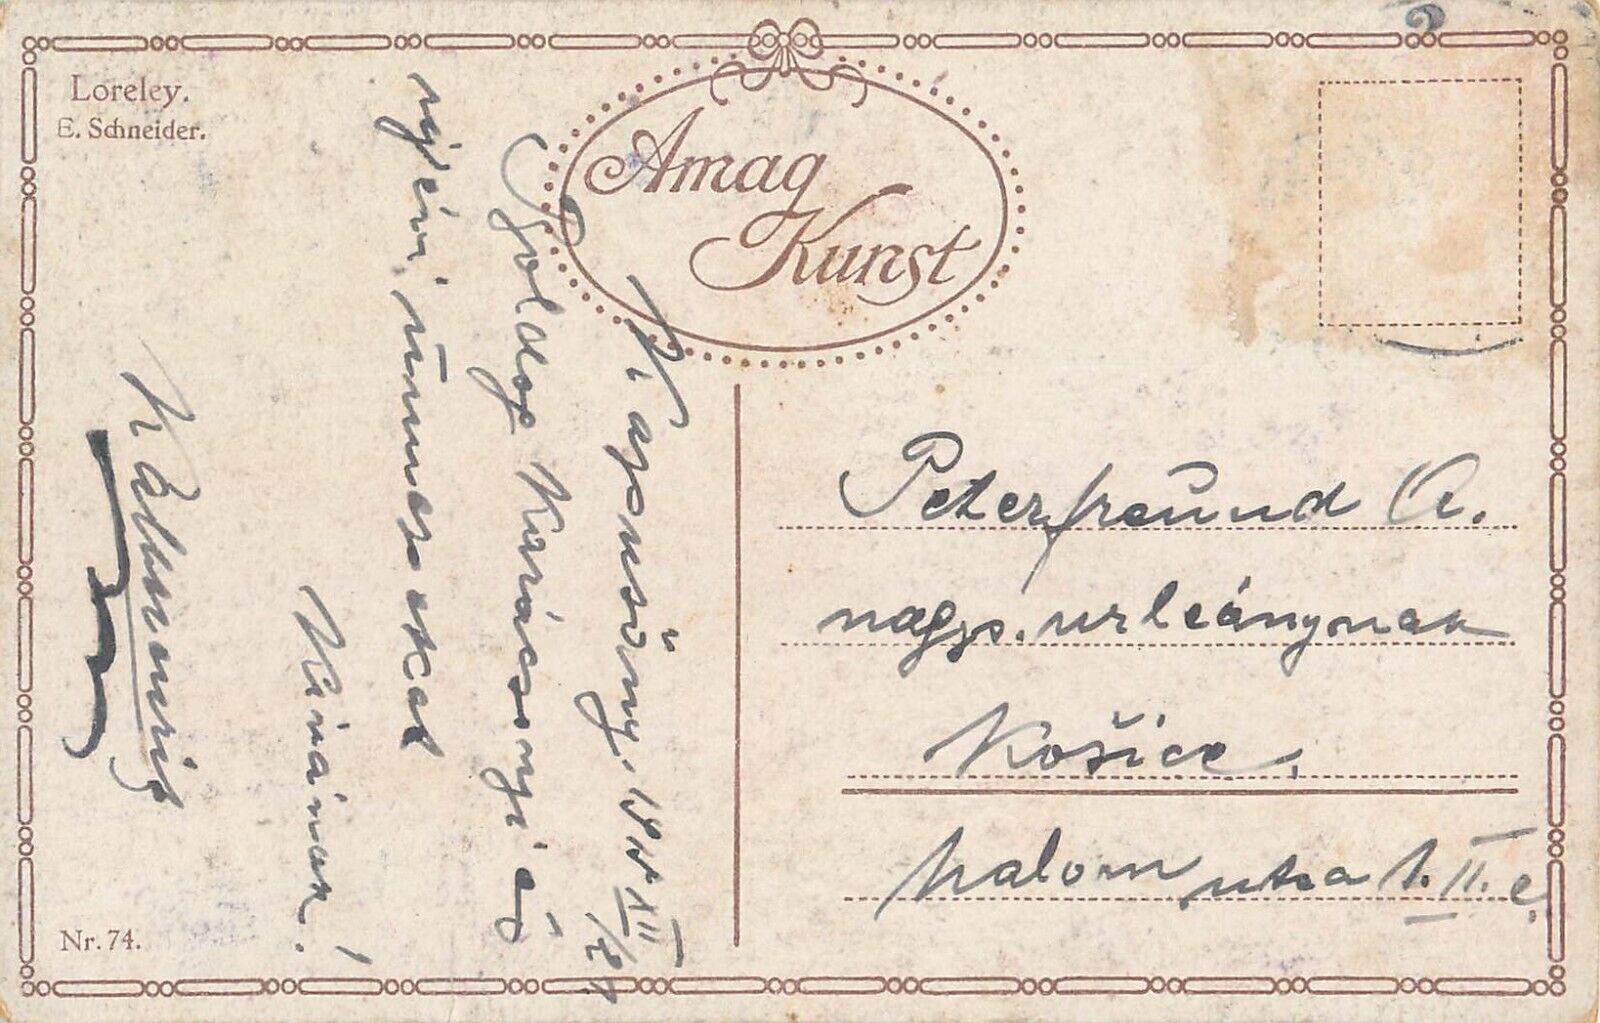 Loreley.
E. Schneider.
Amag
Kunst
Kapussány, XII/21
Boldog Karácsonyi és
ujévi ünnepeket
Kivánok!
Nr. 74.
Peterfreund A.
nagys. urleánynak
Košice.
Malom utca 1. II. e.